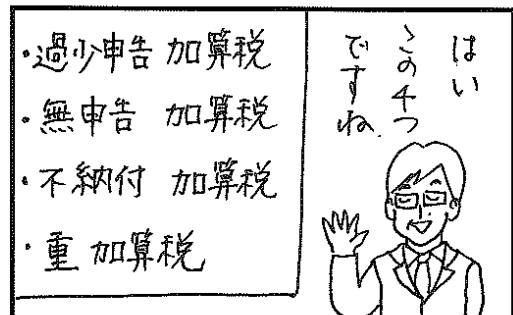 ・過少申告 加算税
・無申告 加算税
・不納付 加算税
・重 加算税
はい
この4つ
ですね.